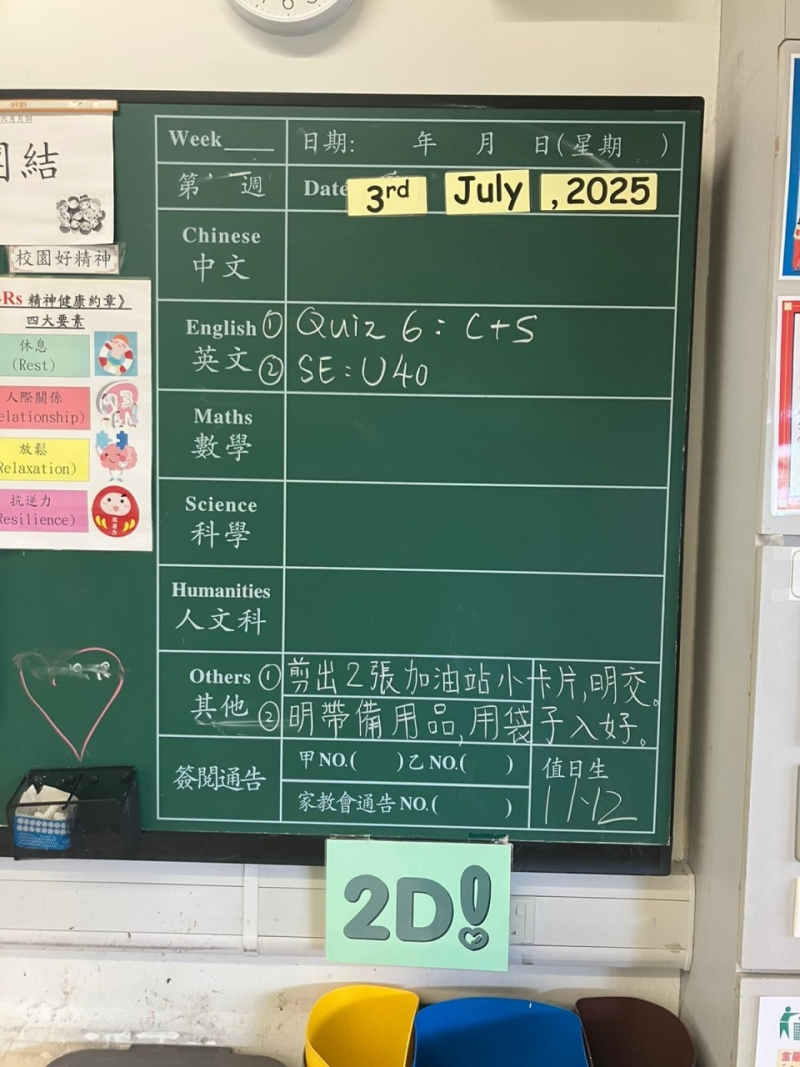 6
結
校園好精神
Rs 精神健康約章》
四大要素
休息
(Rest)
人際關係
elationship)
放鬆
Relaxation)
抗逆力
esilience)
Week____ 日期: 年 月 日(星期 )
第 週 Date 3rd July , 2025
Chinese
中文
English ① Quiz 6: C+S
英文 ② SE: U40
Maths
數學
Science
科學
Humanities
人文科
Others ① 剪出2張加油站小卡片,明交。
其他 ② 明帶備用品,用袋子入好。
簽閱通告 甲NO.( ) 乙NO.( )
家教會通告NO.( )
值日生
11,12
2D!